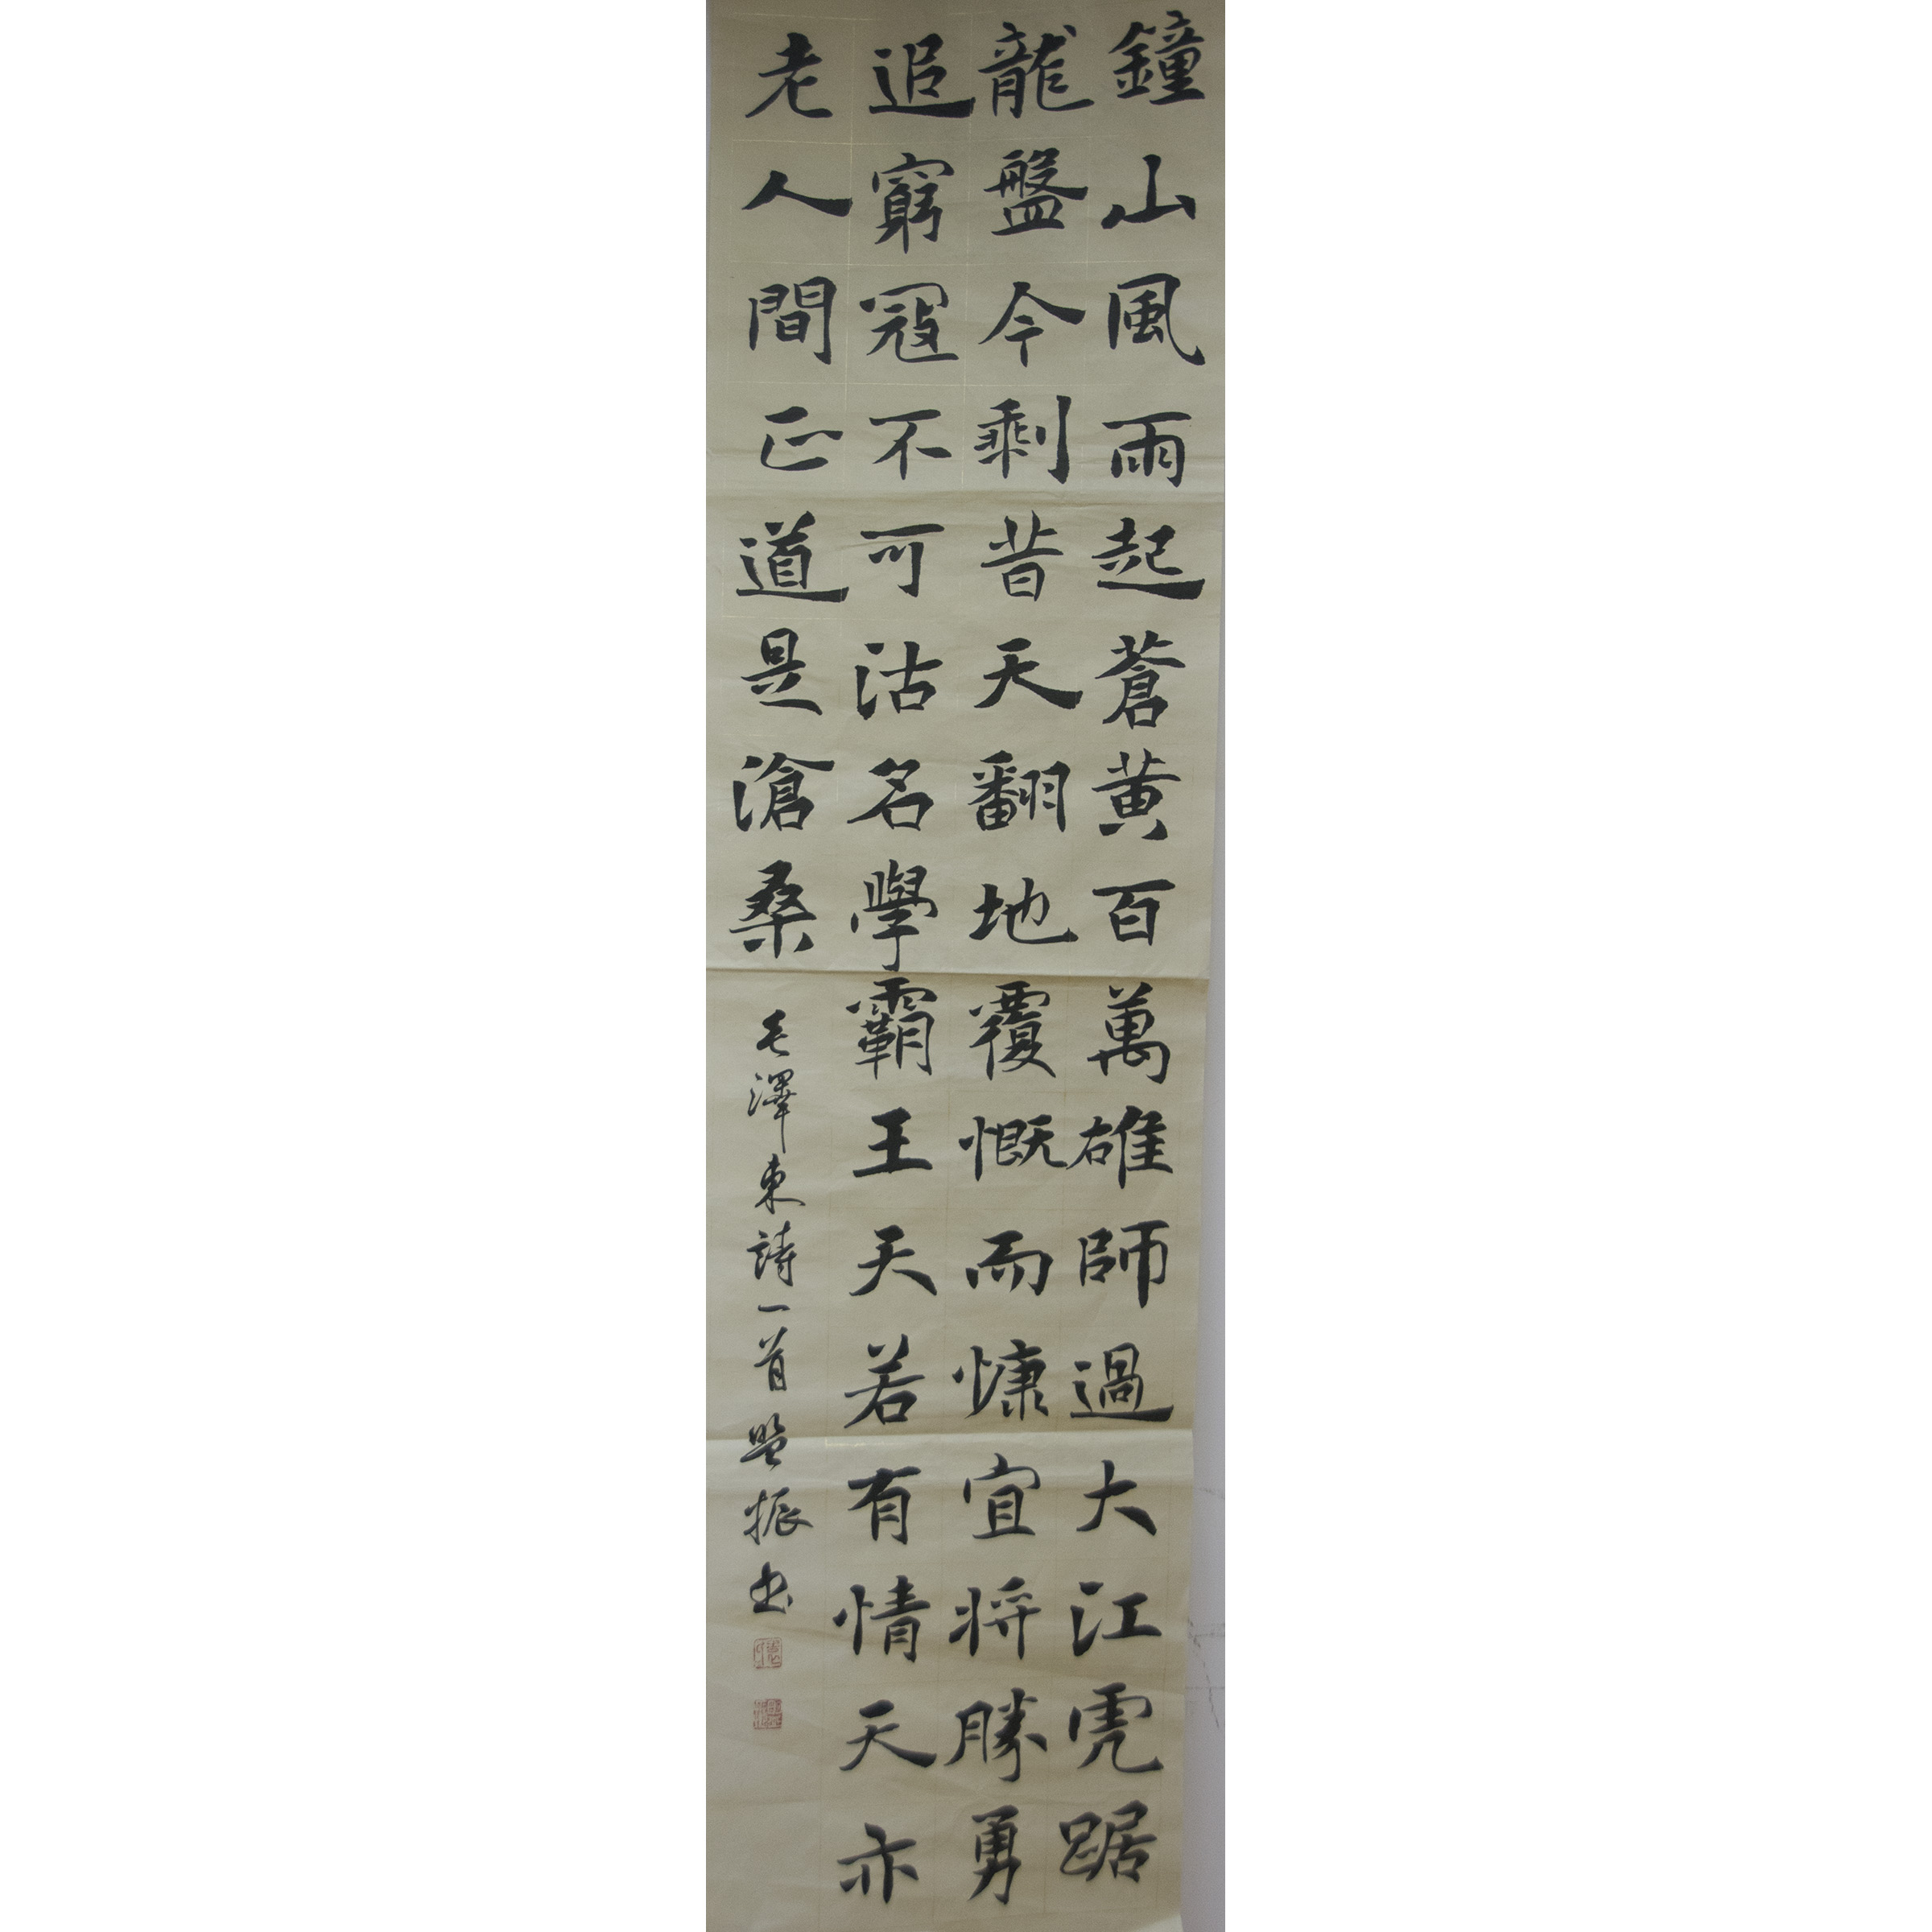 鐘山風雨起蒼黄百萬雄師過大江虎踞
龍盤今剩昔天翻地覆慨而慷宜將勝勇
追窮寇不可沽名學霸王天若有情天亦
老人間正道是滄桑
毛澤東詩一首 振书